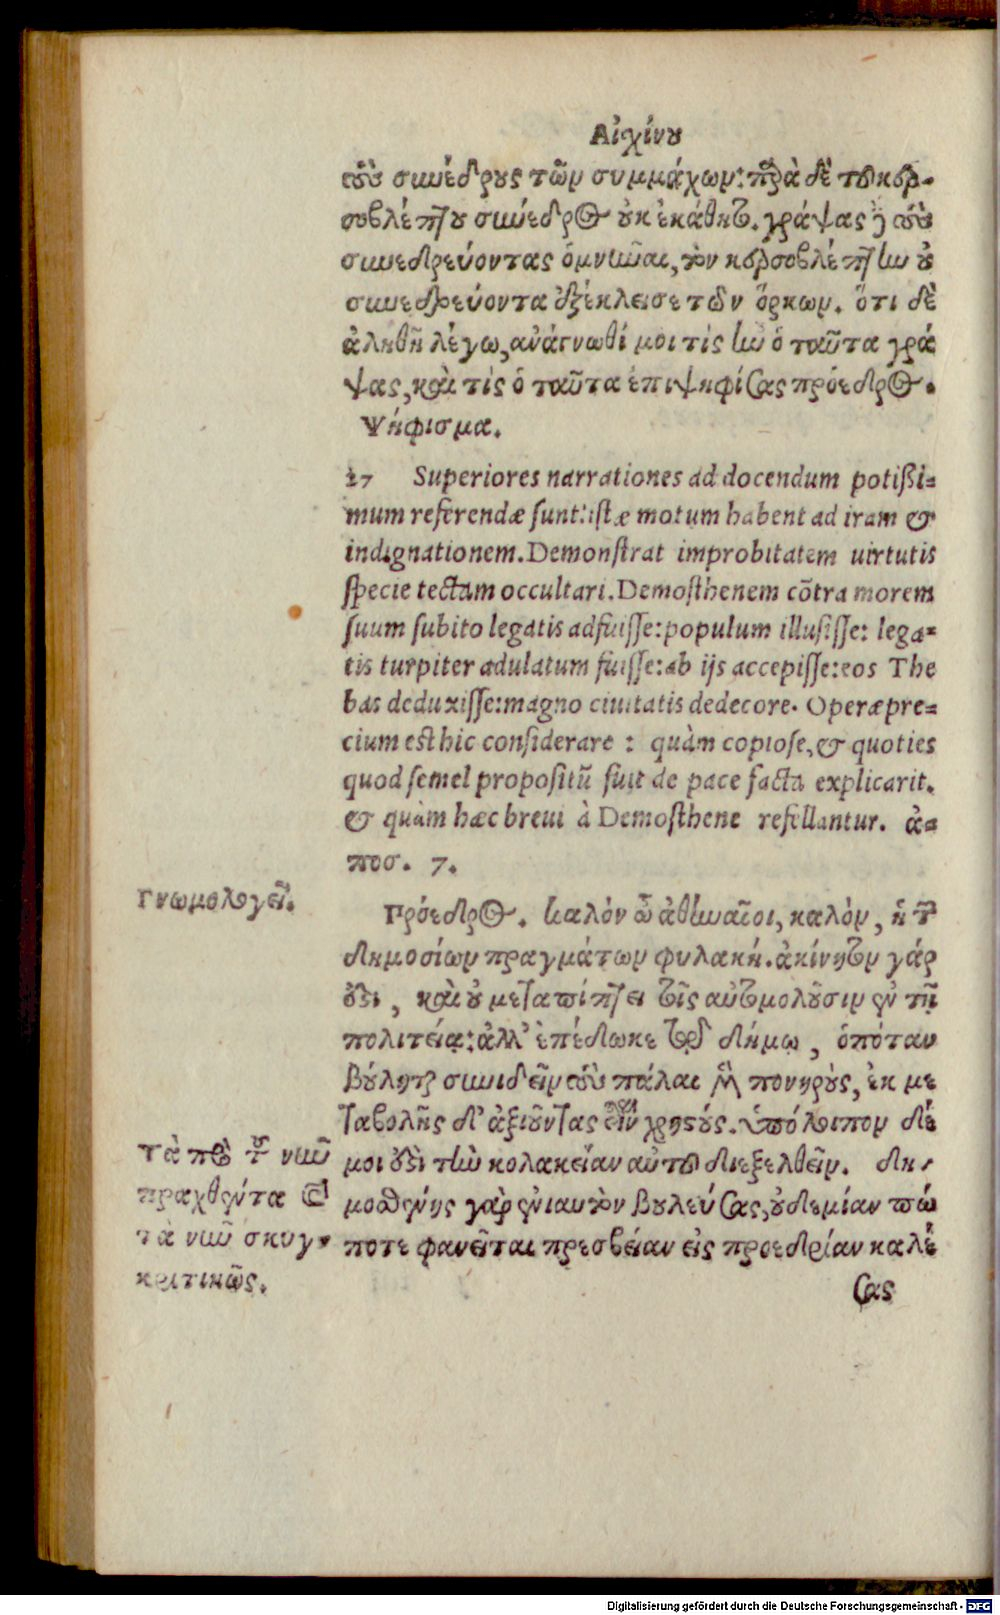 Αἰχίνου
τοὺς συνέδρους τῶν συμμάχων: παρὰ δὲ τοῦ κερ-
σοβλέπτου σύνεδρος οὐκ ἐκάθητο. γράψας δὲ τοὺς
συνεδρεύοντας ὀμνῦναι, τὸν κερσοβλέπτην οὐ
συνεδρεύοντα ἐξέκλεισε τῶν ὅρκων. ὅτι δὲ
ἀληθῆ λέγω, ἀνάγνωθί μοι τίς ἦν ὁ ταῦτα γρά
ψας, καὶ τίς ὁ ταῦτα ἐπιψηφίσας πρόεδρος.
Ψήφισμα.
27 Superiores narrationes ad docendum potißi-
mum referendæ sunt: istæ motum habent ad iram &
indignationem. Demonstrat improbitatem uirtutis
specie tectam occultari. Demosthenem cõtra morem
suum subito legatis adfuisse: populum illusisse: lega-
tis turpiter adulatum fuisse: ab ijs accepisse: eos The
bas deduxisse: magno ciuitatis dedecore. Operæpre-
cium est hic considerare : quàm copiose, & quoties
quod semel propositũ fuit de pace facta explicarit.
& quàm hæc breui à Demosthene refellantur. ἀ-
ποσ. 7.
Γνωμολογεῖ.
Πρόεδρος. καλὸν ὦ ἀθηναῖοι, καλὸν, ἡ τῶν
δημοσίων πραγμάτων φυλακή. ἀκίνητον γάρ
ἐστι, καὶ οὐ μεταπίπτει τοῖς αὐτομολοῦσιν ἐν τῇ
πολιτείᾳ: ἀλλ' ἐπέδωκε τῷ δήμῳ, ὁπόταν
βούληται συνιδεῖν τοὺς πάλαι μὲν πονηροὺς, ἐκ με
ταβολῆς δ' ἀξιοῦντας εἶναι χρηστούς. ὑπόλοιπον δέ
μοι ἐστὶ τὴν κολακείαν αὐτοῦ διεξελθεῖν. δη-
μοσθένης γὰρ ἐνιαυτὸν βουλεύσας, οὐδεμίαν πώ
ποτε φανεῖται πρεσβείαν εἰς προεδρίαν καλέ
Τὰ πρὸ τοῦ νῦν
πραχθέντα καὶ
τὰ νῦν συγ-
κριτικῶς.
σας
Digitalisierung gefördert durch die Deutsche Forschungsgemeinschaft - DFG